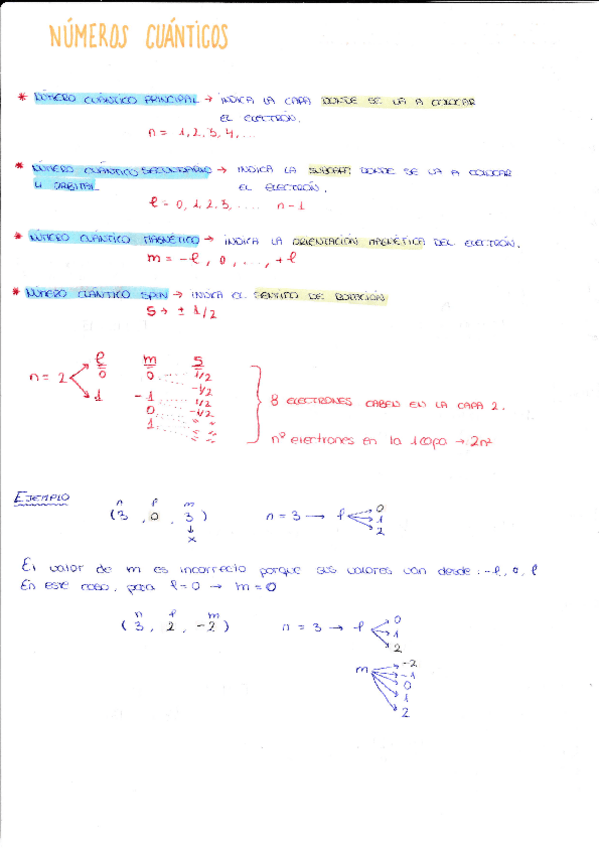 NÚMEROS CUÁNTICOS
* NÚMERO CUÁNTICO PRINCIPAL → INDICA LA CAPA DONDE SE VA A COLOCAR
EL ELECTRÓN.
n = 1, 2, 3, 4, ...
* NÚMERO CUÁNTICO SECUNDARIO → INDICA LA SUBCAPA DONDE SE VA A COLOCAR
U ORBITAL EL ELECTRÓN.
l = 0, 1, 2, 3, .... n-1
* NÚMERO CUÁNTICO MAGNÉTICO → INDICA LA ORIENTACIÓN MAGNÉTICA DEL ELECTRÓN.
m = -l, 0, ..., +l
* NÚMERO CUÁNTICO SPIN → INDICA EL SENTIDO DE ROTACIÓN
S → ± 1/2
l m S
n = 2 0 0 1/2
-1/2
1 -1 1/2
0 -1/2
1 " "
" "
8 ELECTRONES CABEN EN LA CAPA 2.
nº electrones en la capa → 2n²
EJEMPLO
n l m
(3, 0, 3) n = 3 → l 0
1
2
x
El valor de m es incorrecto porque sus valores van desde: -l, 0, l
En este caso, para l=0 → m=0
n l m
(3, 2, -2) n = 3 → l 0
1
2
m -2
-1
0
1
2